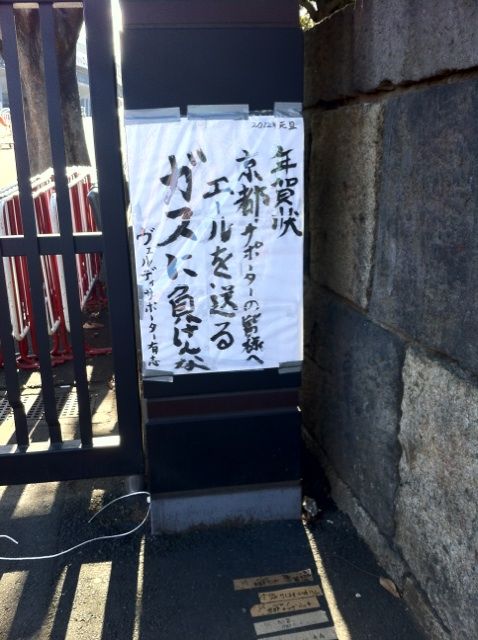 2012年元旦
年賀状
京都サポーターの皆様へ
エールを送る
ガスに負けんな
ヴェルディサポーター有志